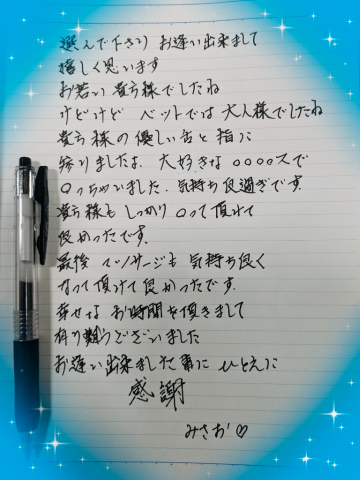 選んで下さり お逢い出来まして
嬉しく思います
お若い貴方様でしたね
けどけど ベットでは大人様でしたね
貴方様の優しい舌と指に
参りましたよ. 大好きな○○○○スで
○っちゃいました. 気持ち良過ぎです.
貴方様も しっかり ○って頂けて
良かったです.
最後 マッサージも 気持ち良く
なって頂けて良かったです.
幸せな お時間を頂きまして
有り難うございました
お逢い出来ました事に ひとえに
感謝
みさお♡